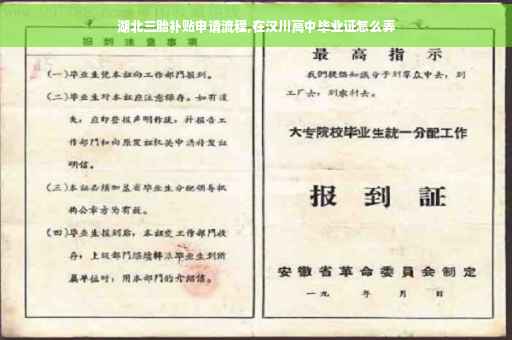 湖北三胎补贴申请流程,在汉川高中毕业证怎么弄
报到注意事项
(一)毕业生凭本证向工作部門报到。
(二)毕业生对本证应注意保存。如有遗
失,应即登报声明作废,并报告工
作部門和向原发证机关申請补发证
明信。
(三)本证必须加盖省毕业生分配领导机
构公章方为有效。
(四)毕业生报到后,本证交工作部門收
存,上级部門
属单位时,用本部門的介绍信。
最高指示
我們提倡知識分子到羣众中去,到
工厂去,到农村去。
大专院校毕业生統一分配工作
报到証
安徽省革命委員会制定
一九 年 月 日